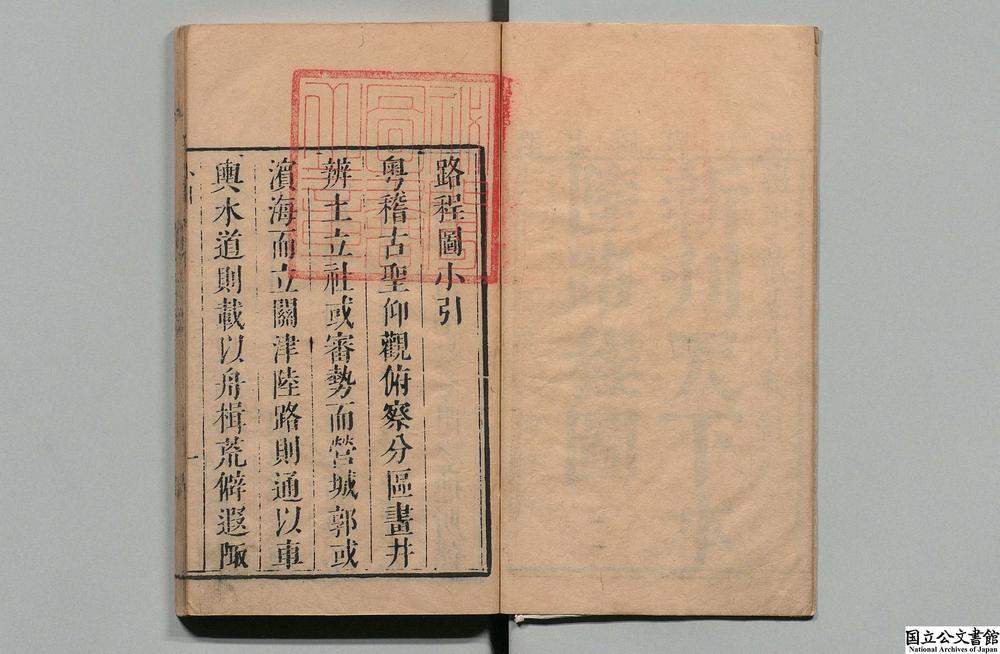 路程圖小引
粤稽古聖仰觀俯察分區畫井
辨土立社或審勢而營城郭或
濱海而立關津陸路則通以車
輿水道則載以舟楫荒僻遐陬
國立公文書館
National Archives of Japan